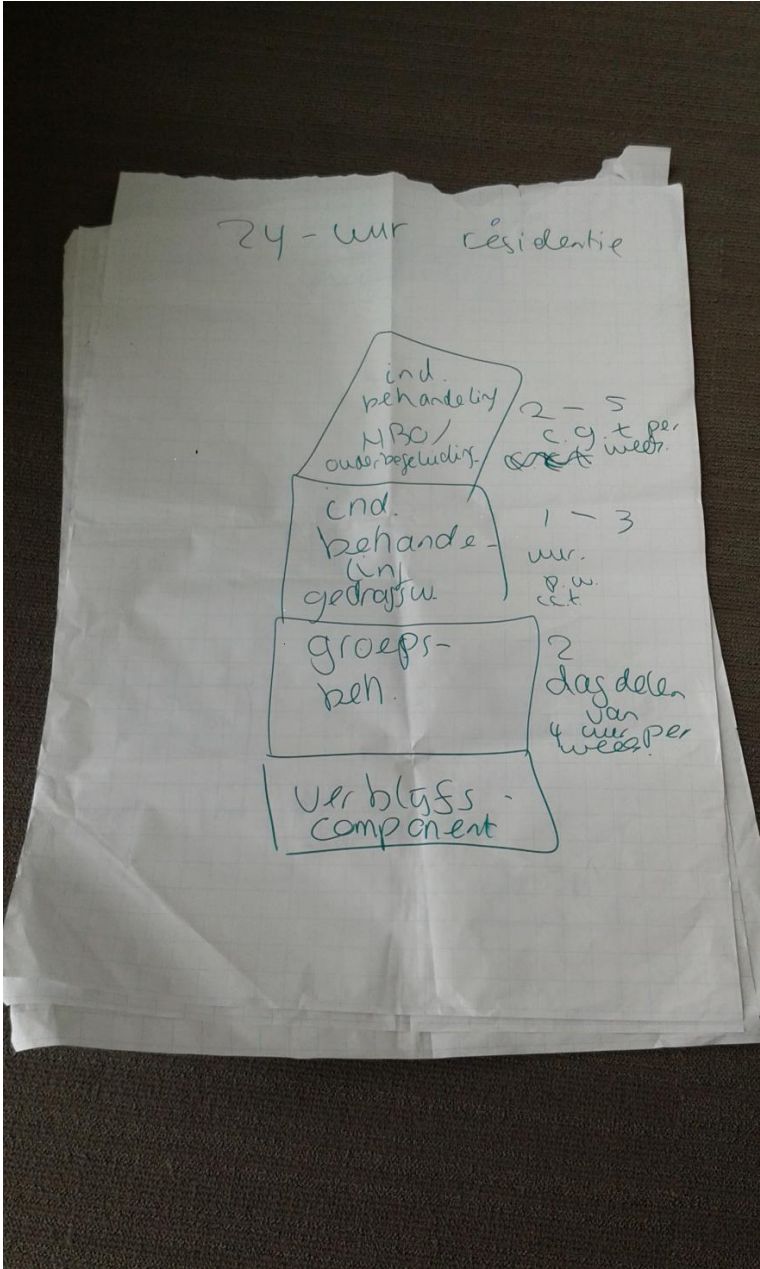 24-uur residentie
ind.
behandeling
HBO/
ouderbegeleiding.
2 - 5
c.g.t per
week.
ind.
behande-
ling
gedragsw.
1 - 3
uur.
p.w.
c.c.t.
groeps-
beh.
2
dagdelen
van
4 uur per
week.
verblijfs-
component